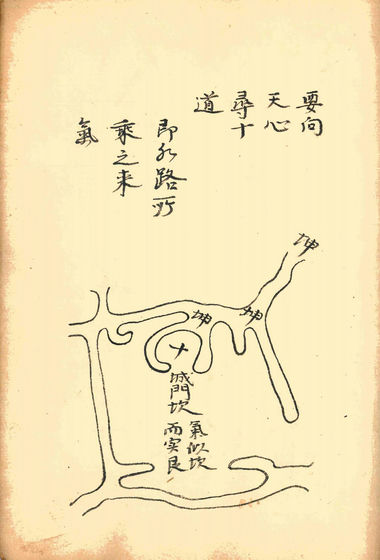 要向
天心
尋十
道
即水路所
乘之来
氣
坤
坤
坤
十
城門坎
氣似坎
而实艮